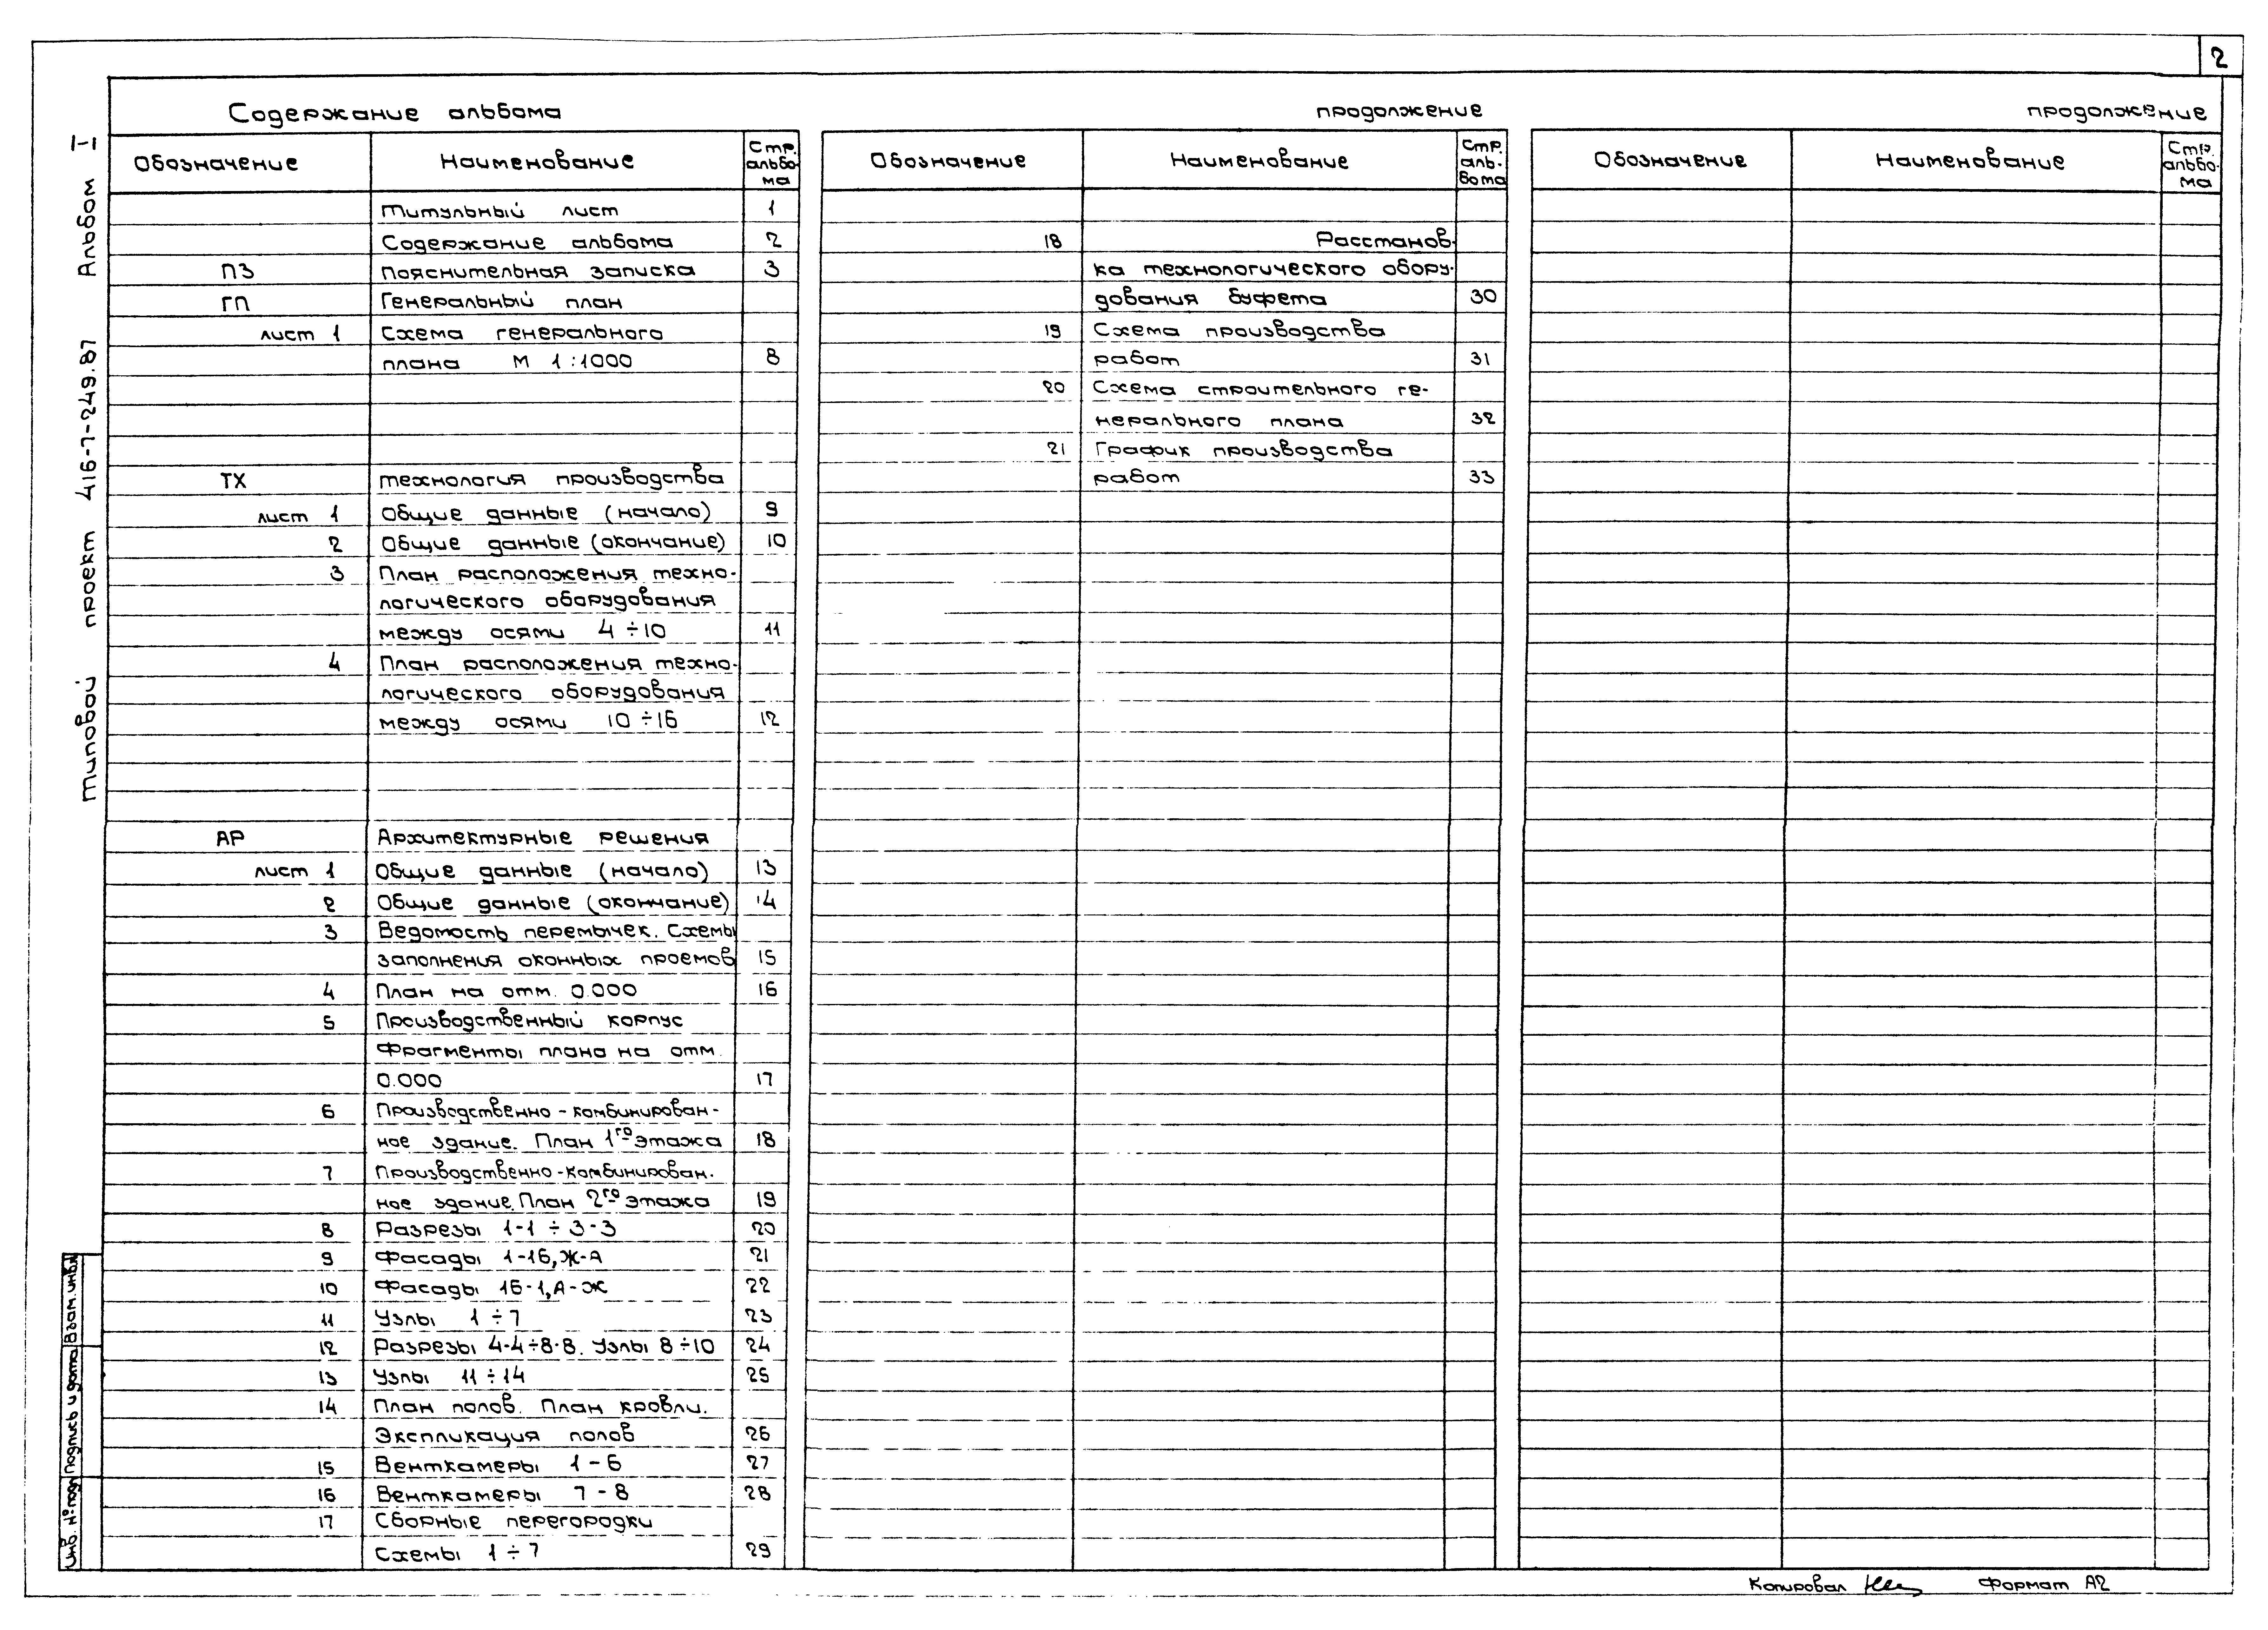 2
Содержание альбома
продолжение
продолжение
типовой проект 416-7-249.87 Альбом I-I
Обозначение Наименование Стр. альбо- ма
Титульный лист 1
Содержание альбома 2
ПЗ пояснительная записка 3
ГП Генеральный план
лист 1 Схема генерального
плана М 1:1000 8
ТХ технология производства
лист 1 Общие данные (начало) 9
2 Общие данные (окончание) 10
3 План расположения техно-
логического оборудования
между осями 4÷10 11
4 План расположения техно-
логического оборудования
между осями 10÷16 12
АР Архитектурные решения
лист 1 Общие данные (начало) 13
2 Общие данные (окончание) 14
3 Ведомость перемычек. Схемы
заполнения оконных проемов 15
4 План на отм. 0.000 16
5 Производственный корпус
Фрагменты плана на отм.
0.000 17
6 Производственно-комбинирован-
ное здание. План 1го этажа 18
7 Производственно-комбинирован-
ное здание. План 2го этажа 19
8 Разрезы 1-1 ÷ 3-3 20
9 Фасады 1-16, Ж-А 21
10 Фасады 16-1, А-Ж 22
11 Узлы 1÷7 23
12 Разрезы 4-4÷8-8. Узлы 8÷10 24
13 Узлы 11÷14 25
14 План полов. План кровли.
Экспликация полов 26
15 Венткамеры 1-6 27
16 Венткамеры 7-8 28
17 Сборные перегородки
Схемы 1÷7 29
Обозначение Наименование Стр. аль- бома
18 Расстанов-
ка технологического обору-
дования буфета 30
19 Схема производства
работ 31
20 Схема строительного ге-
нерального плана 32
21 График производства
работ 33
Обозначение Наименование Стр. альбо- ма
Инв. № подл Подпись и дата Взам. инв.№
Копировал Формат А2